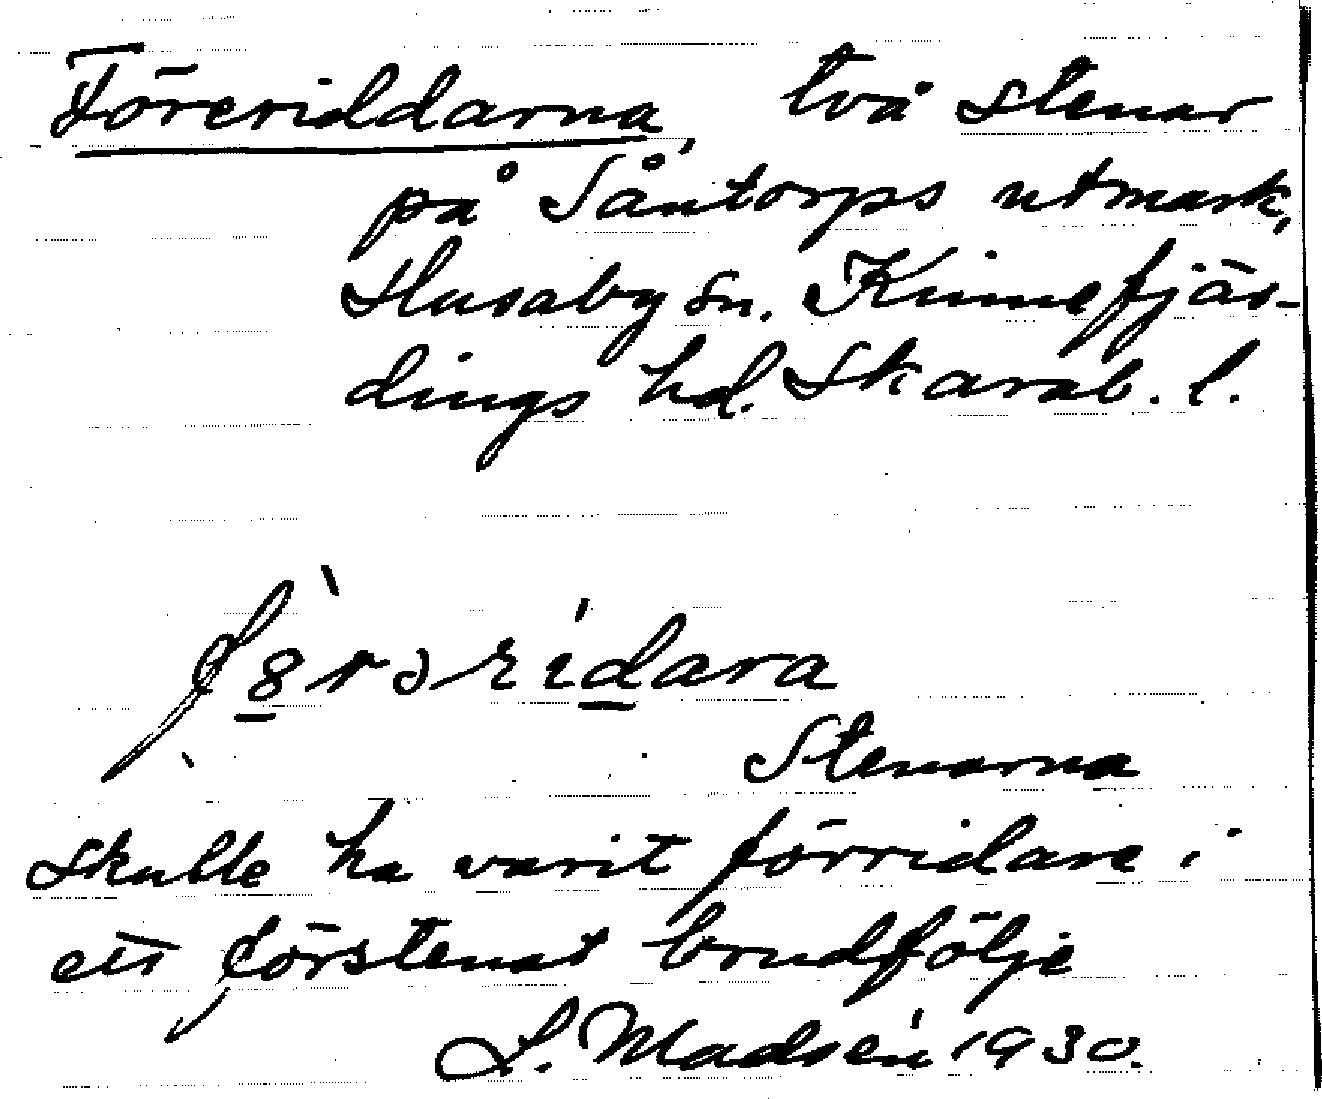 Föreriddarna, två stenar
på Såntorps utmark,
Husaby sn. Kinnefjär-
dings hd. Skarab. l.
Stenarna
skulle ha varit förridare i
ett förstenat brudfölje
S. Madsén 1930.